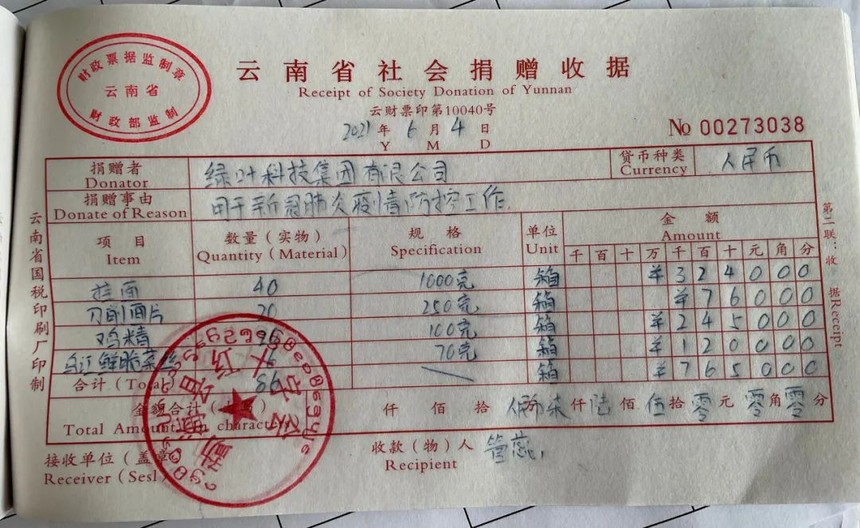 财政票据监制章
云南省
财政部监制
云南省社会捐赠收据
Receipt of Society Donation of Yunnan
云财票印第10040号
2021年6月4日
Y M D
№ 00273038
捐赠者 绿叶科技集团有限公司 货币种类 人民币
Donator Currency
捐赠事由 用于新冠肺炎疫情防控工作.
Donate of Reason
项目 数量(实物) 规格 单位 金额
Item Quantity (Material) Specification Unit Amount
千 百 十 万 千 百 十 元 角 分
拉面 40 1000克 箱 ¥324000
刀削面片 20 250克 箱 ¥76000
鸡精 100克 箱 ¥245000
乌江鲜脆菜丝 70克 箱 ¥120000
合计(Total) 86 箱 ¥765000
金额合计 仟 佰 拾 人民币柒仟陆佰伍拾零元零角零分
Total Amount in characters
接收单位(盖章) 收款(物)人
Receiver (Sesl) Recipient
云南省国税印刷厂印制
第二联:收据 Receipt